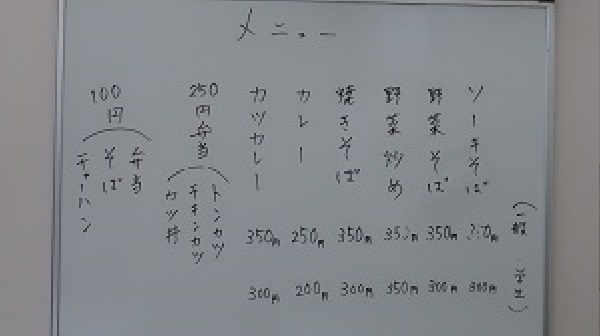 メニュー
(一般) (学生)
ソーキそば 300円
野菜そば 350円 300円
野菜炒め 350円 350円
焼きそば 350円 300円
カレー 250円 200円
カツカレー 350円 300円
250円弁当
トンカツ
チキンカツ
カツ丼
100円
弁当
そば
チャーハン